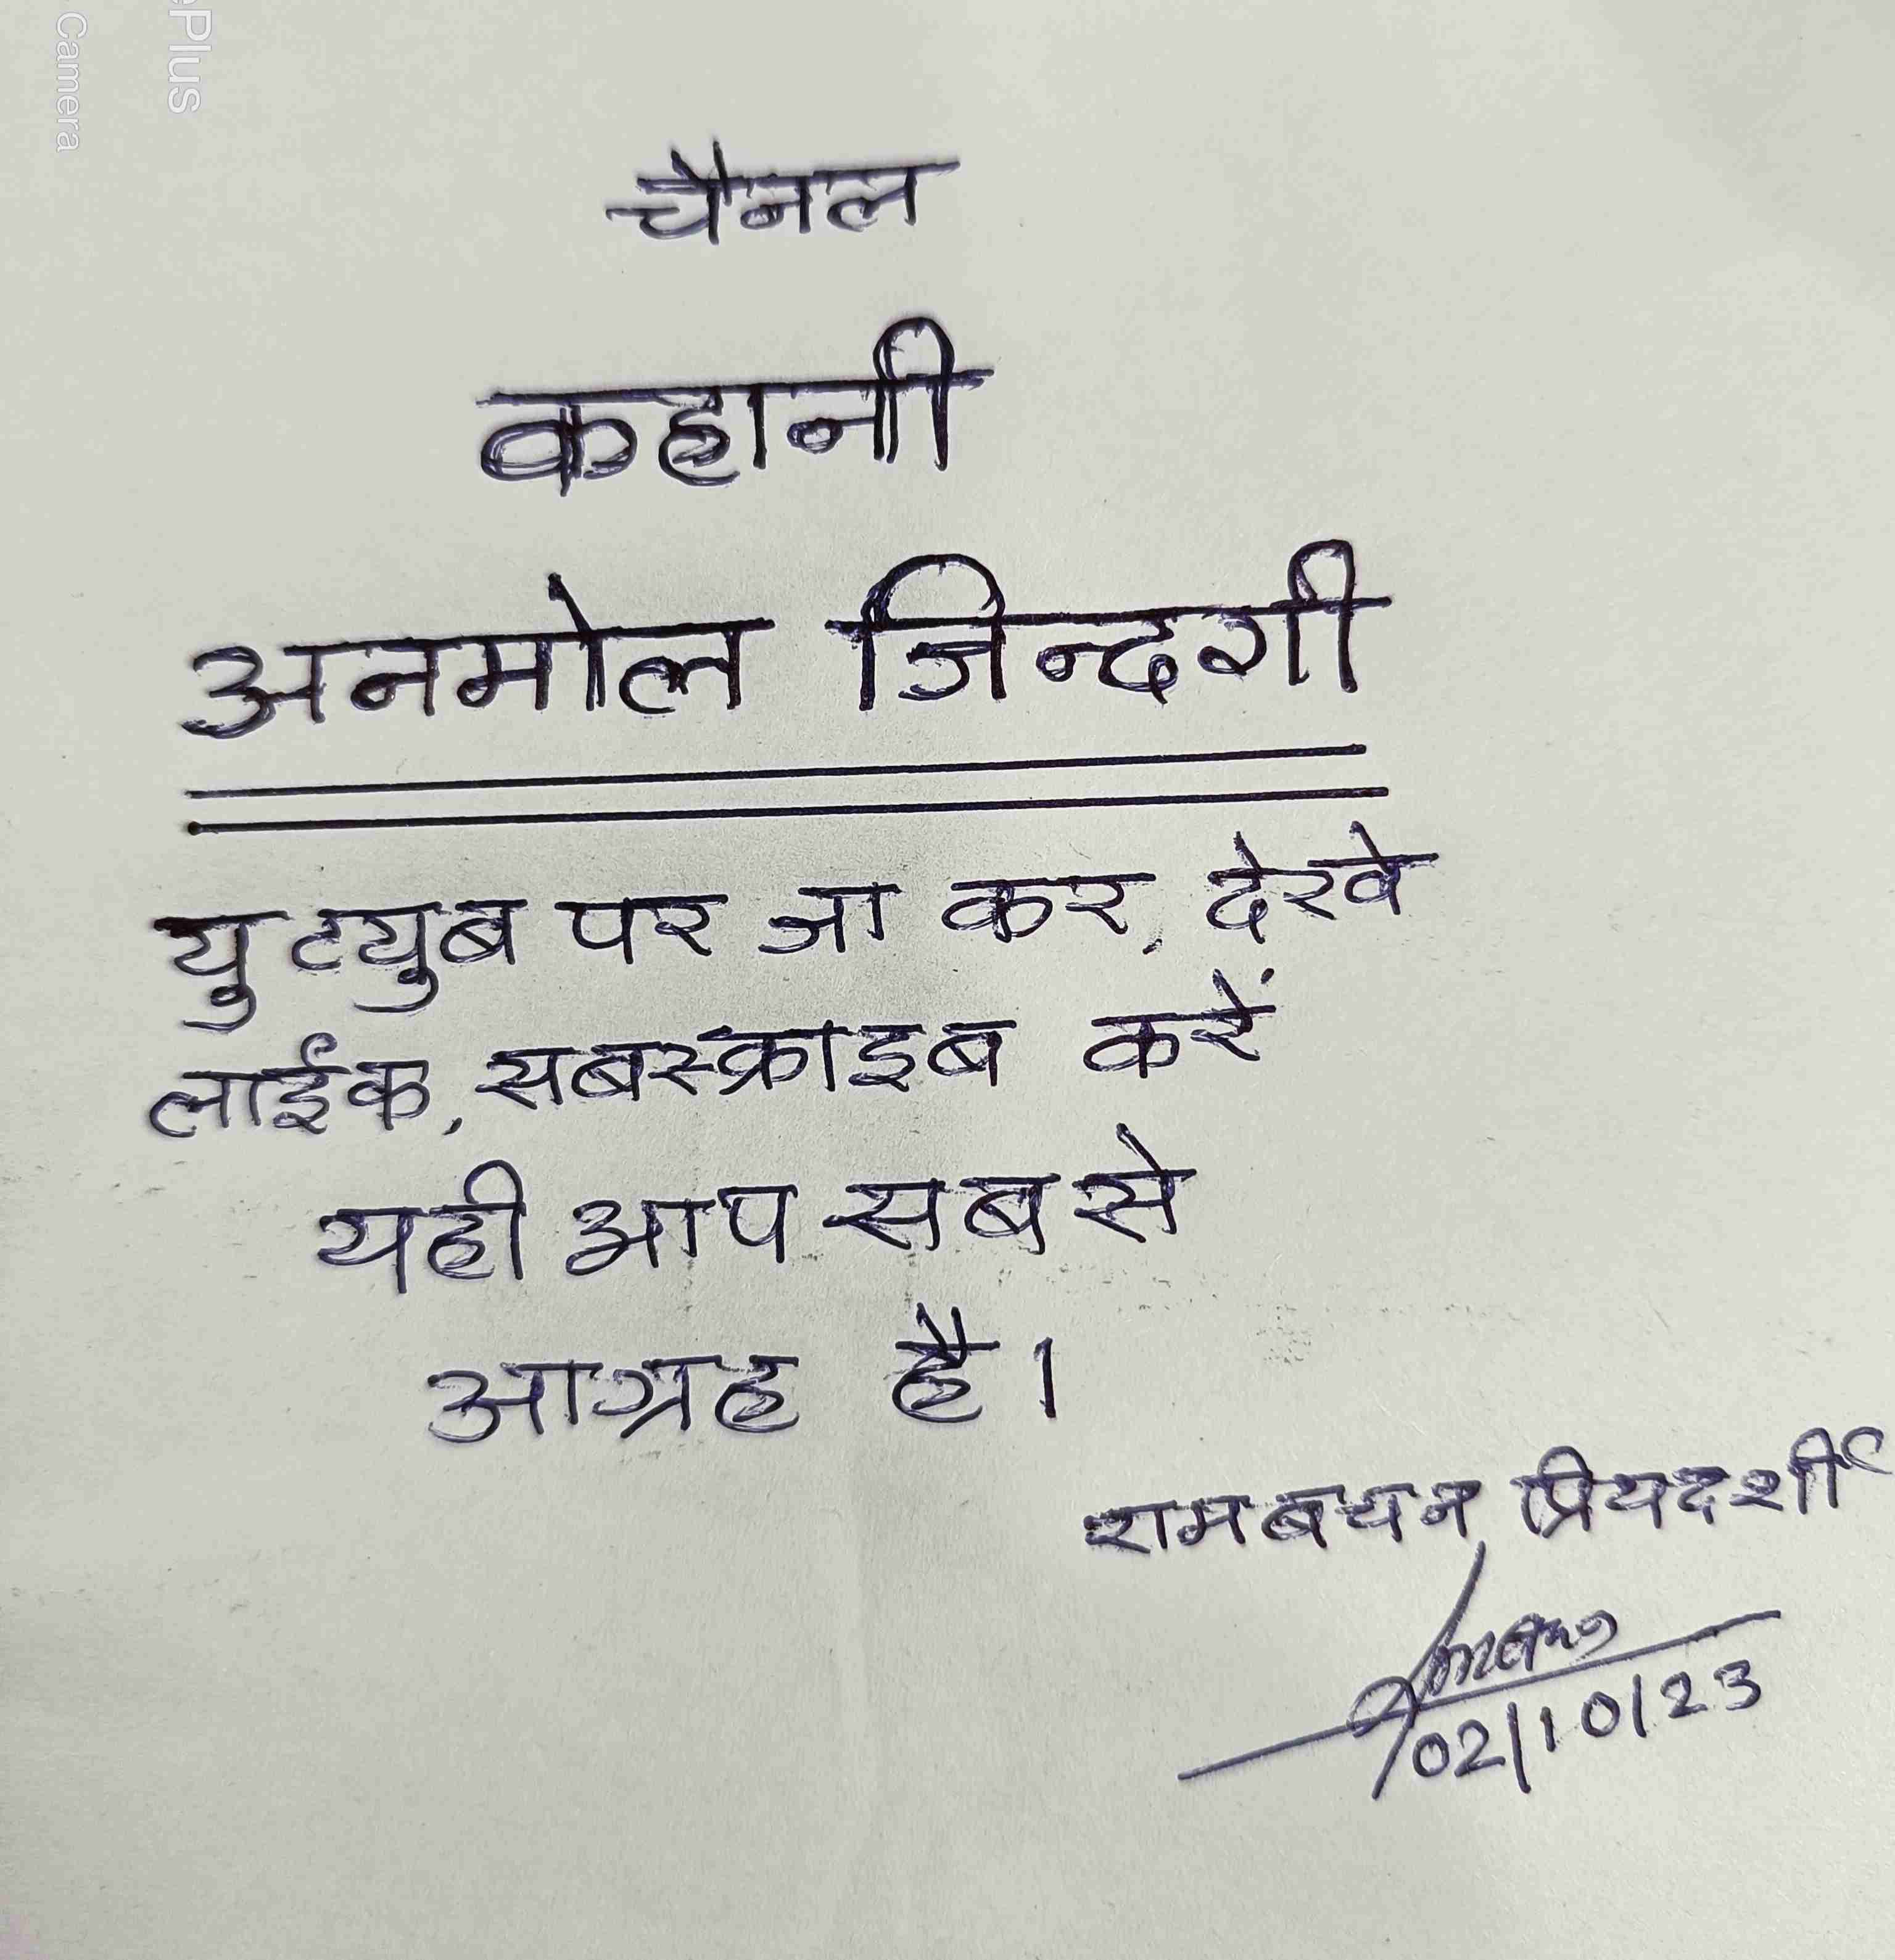 चैनल
कहानी
अनमोल जिन्दगी
युटयुब पर जा कर, देखे
लाईक, सबस्क्राइब करें
यही आप सब से
आग्रह है।
रामबचन प्रियदर्शी
02/10/23
ePlus
Camera